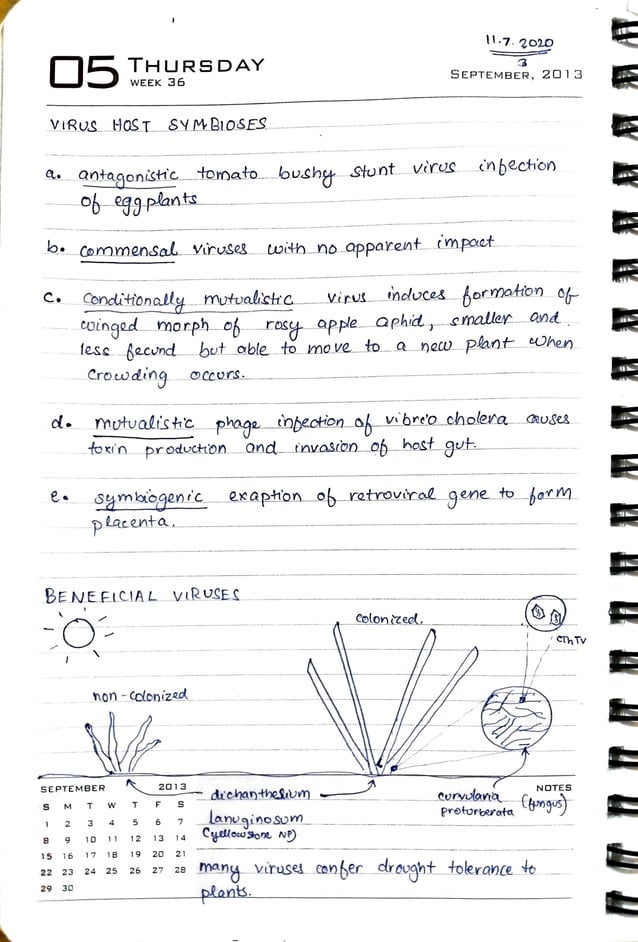 11.7.2020
3
05 THURSDAY
WEEK 36
SEPTEMBER, 2013
VIRUS HOST SYMBIOSES
a. antagonistic tomato bushy stunt virus infection
of eggplants
b. commensal viruses with no apparent impact
c. conditionally mutualistic virus induces formation of
winged morph of rosy apple aphid, smaller and
less fecund but able to move to a new plant when
crowding occurs.
d. mutualistic phage infection of vibreo cholera causes
toxin production and invasion of host gut.
e. symbiogenic exaption of retroviral gene to form
placenta.
BENEFICIAL VIRUSES
colonized.
CThTV
non-colonized
SEPTEMBER 2013
S M T W T F S
1 2 3 4 5 6 7
8 9 10 11 12 13 14
15 16 17 18 19 20 21
22 23 24 25 26 27 28
29 30
dichanthelium
lanuginosum
(yellowstone NP)
NOTES
curvularia
proturberata (fungus)
many viruses confer drought tolerance to
plants.